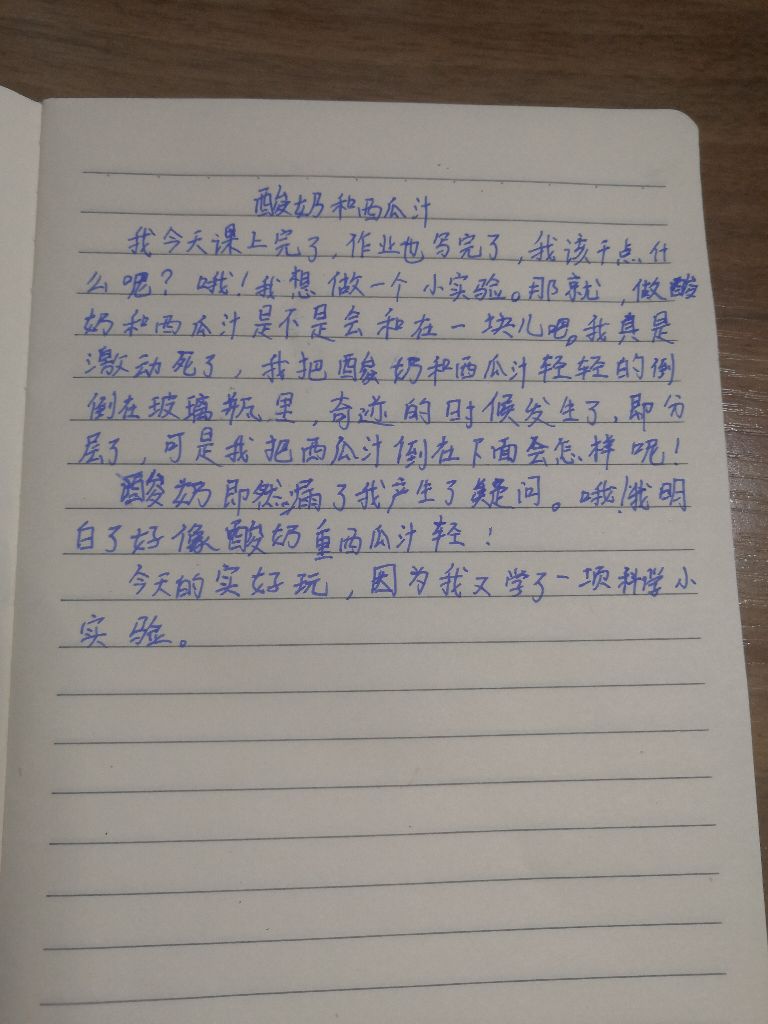 酸奶和西瓜汁
我今天课上完了，作业也写完了，我该干点什
么呢？哦！我想做一个小实验。那就，做酸
奶和西瓜汁是不是会和在一块儿吧。我真是
激动死了，我把酸奶和西瓜汁轻轻的倒
倒在玻璃瓶里，奇迹的时候发生了，即分
层了，可是我把西瓜汁倒在下面会怎样呢！
酸奶即然漏了我产生了疑问。哦！我明
白了好像酸奶重西瓜汁轻！
今天的实好玩，因为我又学了一项科学小
实验。